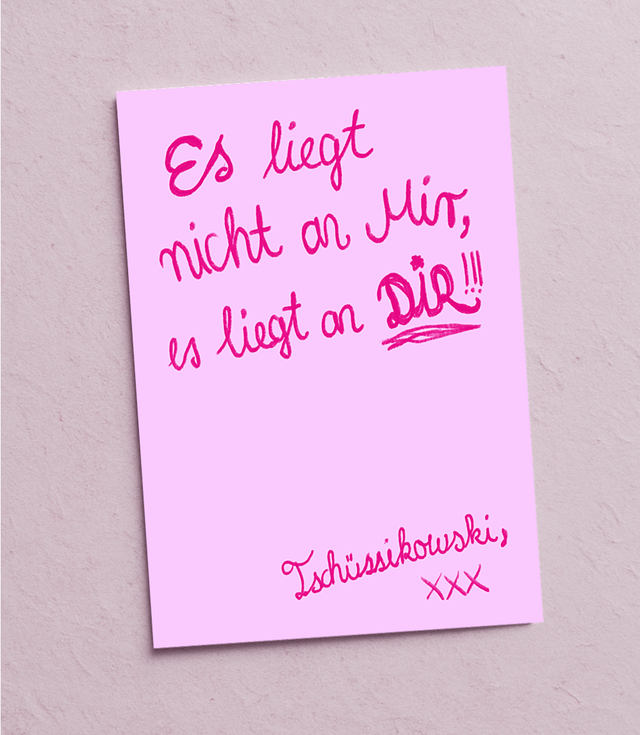 Es liegt
nicht an Mir,
es liegt an DIR!!!
Tschüssikowski,
xxx